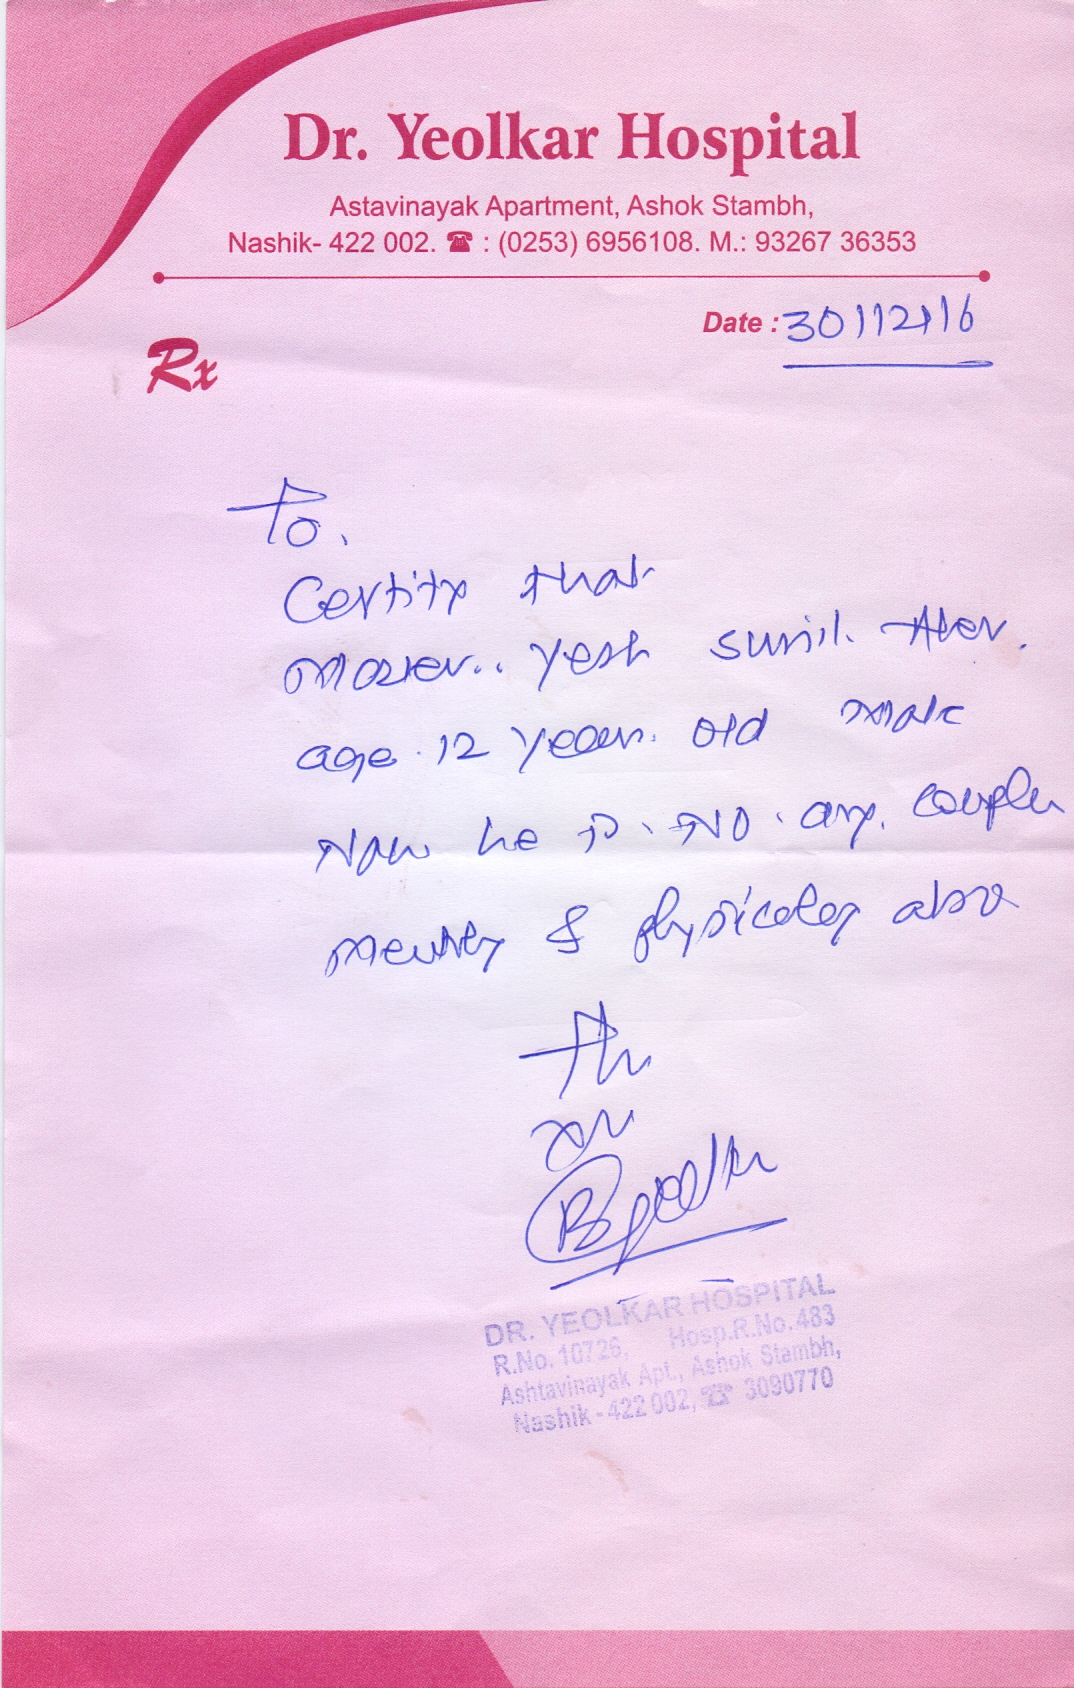 Dr. Yeolkar Hospital
Astavinayak Apartment, Ashok Stambh,
Nashik- 422 002. ☎ : (0253) 6956108. M.: 93267 36353
Date : 30/12/16
Rx
To.
Certify that
Yesh Sunil.
age. 12 years. old male
Now he is. No. any.
& physicaley also
DR. YEOLKAR HOSPITAL
R.No. 10726, Hosp.R.No. 483
Ashtavinayak Apt., Ashok Stambh,
Nashik - 422 002, ☎ 3090770